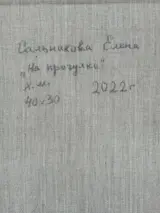 Сальникова Елена
„На прогулке"
х.м. 2022г
40х30